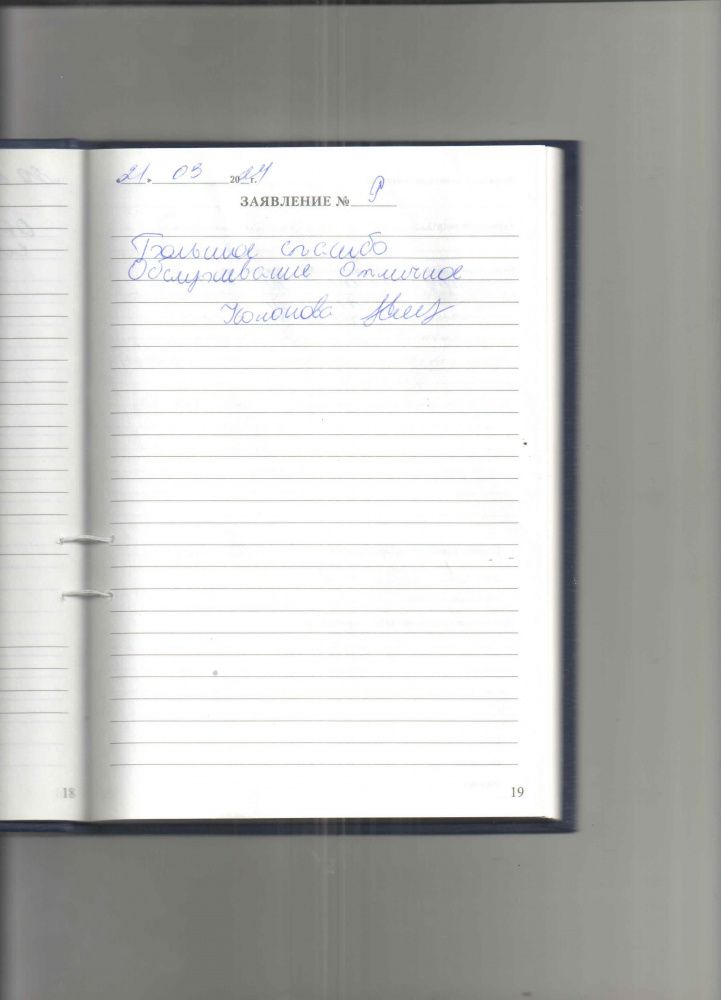 21 » 03 2024 г.
ЗАЯВЛЕНИЕ № 9
Большое спасибо
Обслуживание отличное
18
19